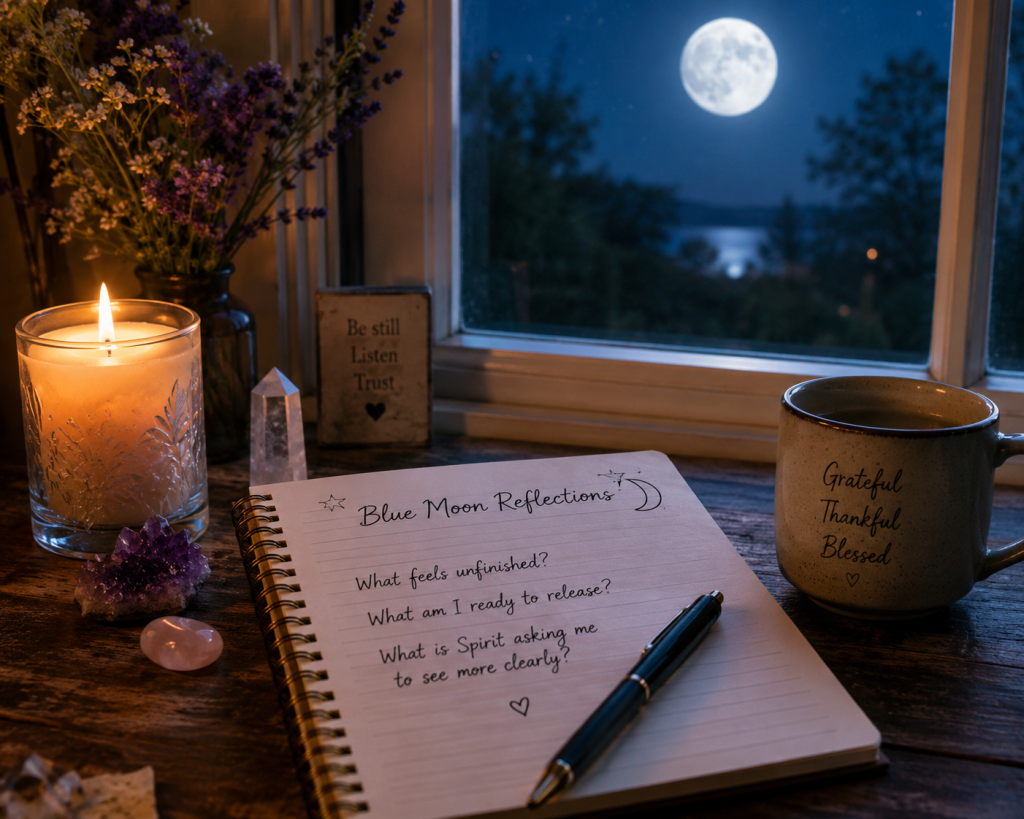 Be still
Listen
Trust
Blue Moon Reflections
What feels unfinished?
What am I ready to release?
What is Spirit asking me
to see more clearly?
Grateful
Thankful
Blessed